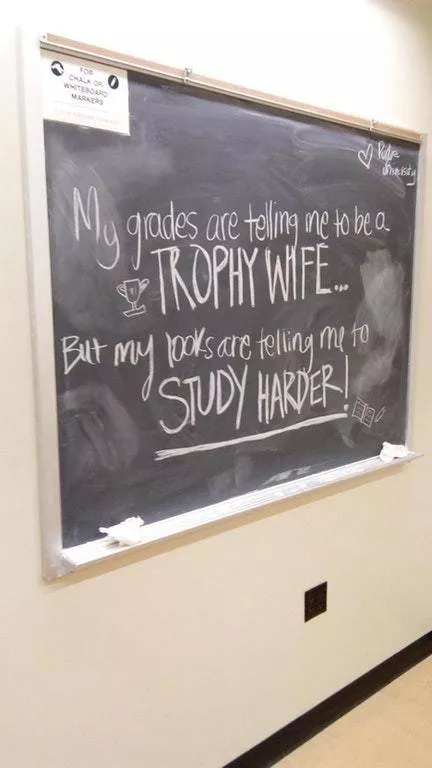 FOR
CHALK OR
WHITEBOARD
MARKERS
♡ Purdue
University
My grades are telling me to be a
TROPHY WIFE...
But my looks are telling me to
STUDY HARDER!